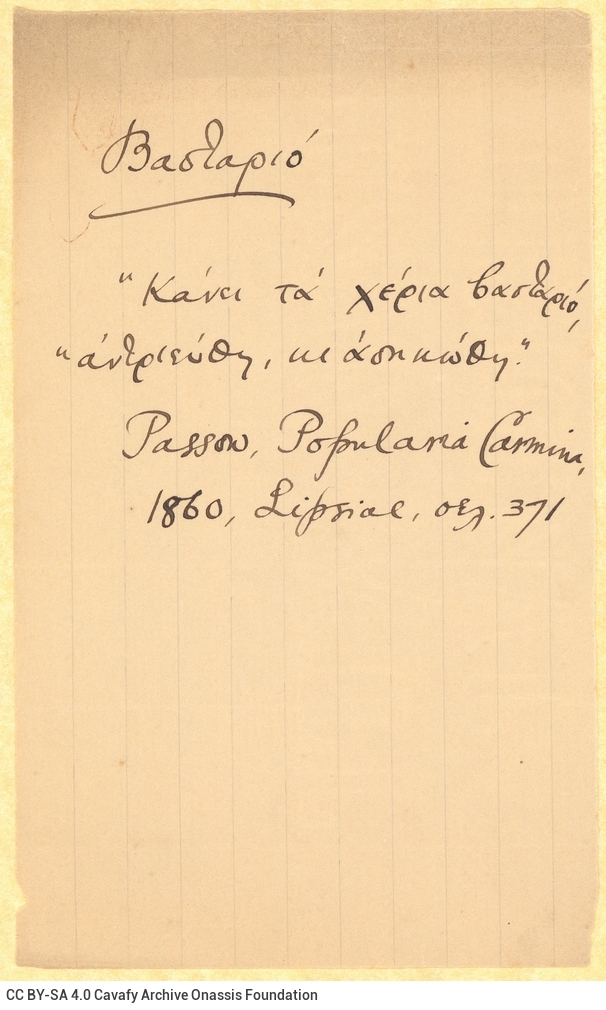 Βασταριό
"Κάνει τά χέρια βασταριό,
"άντριεύθη, κι άσηκώθη."
Passow, Popularia Carmina,
1860, Lipsiae, σελ. 371
CC BY-SA 4.0 Cavafy Archive Onassis Foundation